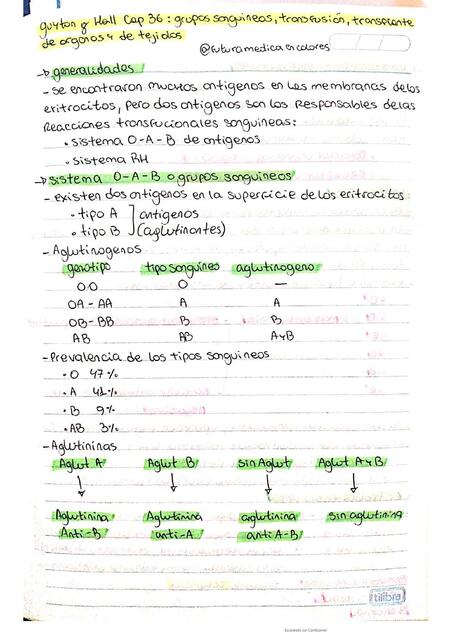 guyton y Hall Cap 36: grupos sanguineos, transfusión, transplante
de organos y de tejidos
@futuramedica en colores
→ generalidades
- se encontraron muchos antigenos en las membranas de los
eritrocitos, pero dos antigenos son los Responsables de las
Reacciones transfucionales sanguineas:
• sistema O-A-B de antigenos
• sistema RH
→ sistema O-A-B o grupos sanguineos
- Existen dos antigenos en la superficie de los eritrocitos:
• tipo A ] antigenos
• tipo B ] (aglutinantes)
- Aglutinogenos
genotipo tipo sanguineo aglutinogeno
OO O —
OA - AA A A
OB - BB B B
AB AB A y B
- Prevalencia de los tipos sanguineos
• O 47%
• A 41%
• B 9%
• AB 3%
- Aglutininas
Aglut A Aglut B sin Aglut Aglut A y B
↓ ↓ ↓ ↓
Aglutinina Aglutinina aglutinina sin aglutinina
Anti-B anti-A anti A-B
tilibra
Escaneado con CamScanner